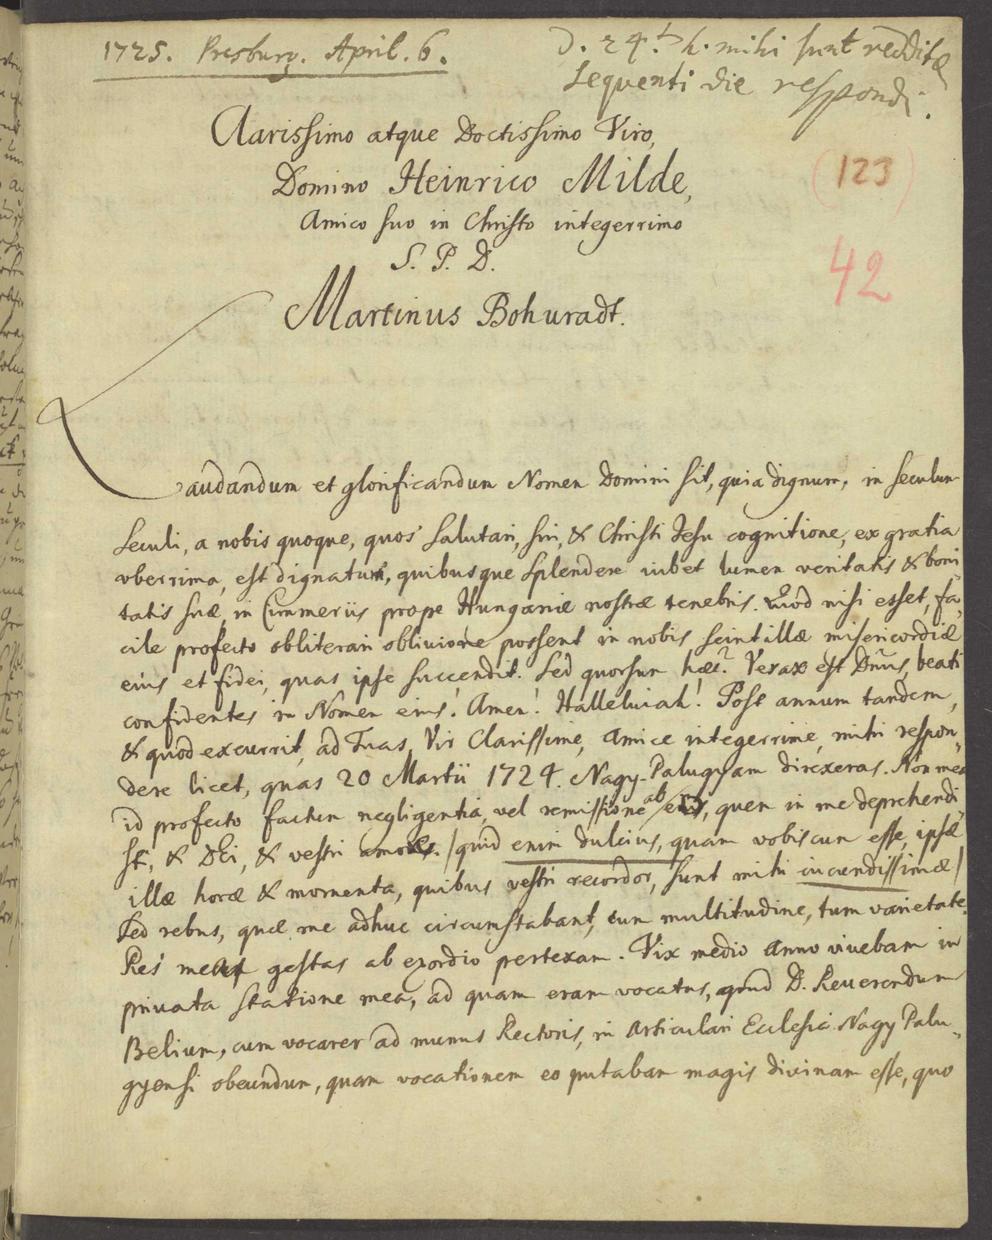 1725. Presburg. April. 6.
D. 24.t h. mihi sunt redditæ
sequenti die respondi.
Clarissimo atque Doctissimo Viro,
Domino Heinrico Milde,
Amico suo in Christo integerrimo
S. P. D.
Martinus Bohuradt.
(123)
42
Laudandum et glorificandum Nomen Domini sit, quia dignum, in seculum
seculi, a nobis quoque, quos salutari, sui, & Christi Jesu cognitione, ex gratia
vberrima, est dignatum, quibusque splendere iubet lumen veritatis & boni-
tatis suæ, in Cimmeriis prope Hungariæ nostræ tenebris. Quod nisi esset, fa-
cile profecto obliterari obliuione possent in nobis scintillæ misericordiæ
eius et fidei, quas ipse succendit. Sed quorsum hæc? Verax est Dn̄us, beati
confidentes in Nomen eius! Amen! Halleluiah! Post annum tandem,
& quod excurrit, ad Tuas, Vir Clarissime, Amice integerrime, mihi respon-
dere licet, quas 20 Martii 1724. Nagy-Palugyam direxeras. Non mea
id profecto factum negligentia, vel remissione ab eo, quem in me deprehendi-
sti, & Dei, & vestri amore. /quid enim dulcius, quam vobiscum esse, ipsæ
illæ horæ & momenta, quibus vestri recordor, sunt mihi iucundissimæ/
Sed rebus, quæ me adhuc circumstabant, cum multitudine, tum varietate.
Res meas gestas ab exordio pertexam. Vix medio anno viuebam in
priuata statione mea, ad quam eram vocatus, apud D. Reuerendum
Belium, cum vocarer ad munus Rectoris, in Articulari Ecclesia Nagy Palu-
gyensi obeundum, quam vocationem eo putabam magis diuinam esse, quo